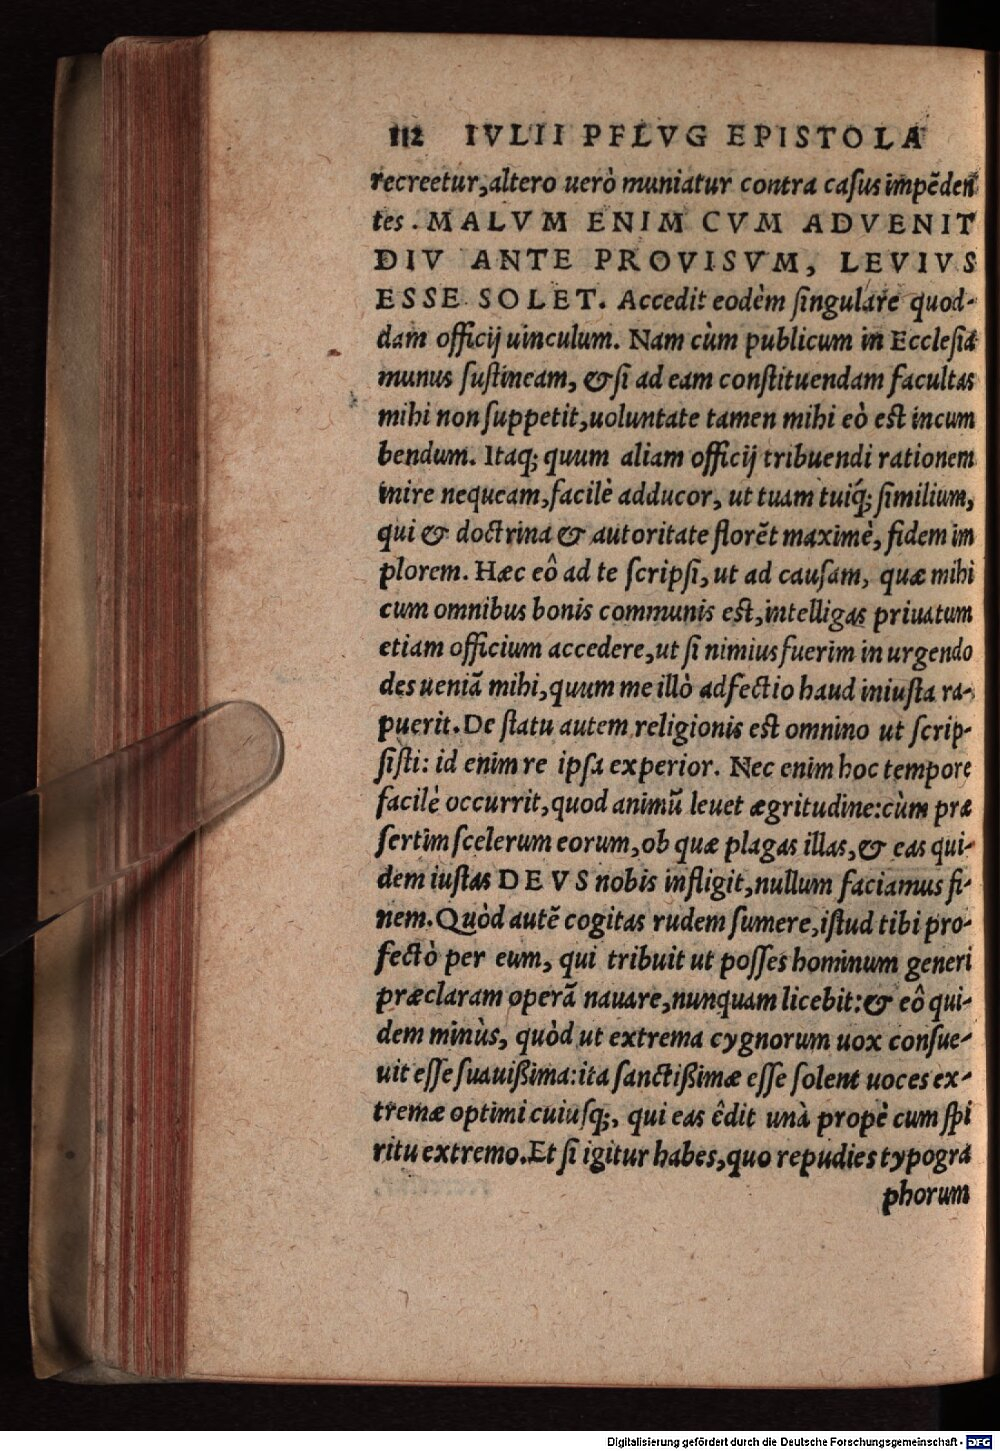 112 IVLII PFLVG EPISTOLA
recreetur, altero uerò muniatur contra casus impēden
tes. MALVM ENIM CVM ADVENIT
DIV ANTE PROVISVM, LEVIVS
ESSE SOLET. Accedit eodèm singulare quod-
dam officij uinculum. Nam cùm publicum in Ecclesia
munus sustineam, & si ad eam constituendam facultas
mihi non suppetit, uoluntate tamen mihi eò est incum
bendum. Itaq; quum aliam officij tribuendi rationem
inire nequeam, facilè adducor, ut tuam tuiq́; similium,
qui & doctrina & autoritate florēt maximè, fidem im
plorem. Hæc eô ad te scripsi, ut ad causam, quæ mihi
cum omnibus bonis communis est, intelligas priuatum
etiam officium accedere, ut si nimius fuerim in urgendo
des ueniā mihi, quum me illò adfectio haud iniusta ra-
puerit. De statu autem religionis est omnino ut scrip-
sisti: id enim re ipsa experior. Nec enim hoc tempore
facilè occurrit, quod animū leuet ægritudine: cùm præ
sertim scelerum eorum, ob quæ plagas illas, & eas qui-
dem iustas DEVS nobis infligit, nullum faciamus fi-
nem. Quòd autē cogitas rudem sumere, istud tibi pro-
fectò per eum, qui tribuit ut posses hominum generi
præclaram operā nauare, nunquam licebit: & eô qui-
dem minùs, quòd ut extrema cygnorum uox consue-
uit esse suauißima: ita sanctißimæ esse solent uoces ex-
tremæ optimi cuiusq;, qui eas êdit unà propè cum spi
ritu extremo. Et si igitur habes, quo repudies typogra
phorum
Digitalisierung gefördert durch die Deutsche Forschungsgemeinschaft - DFG